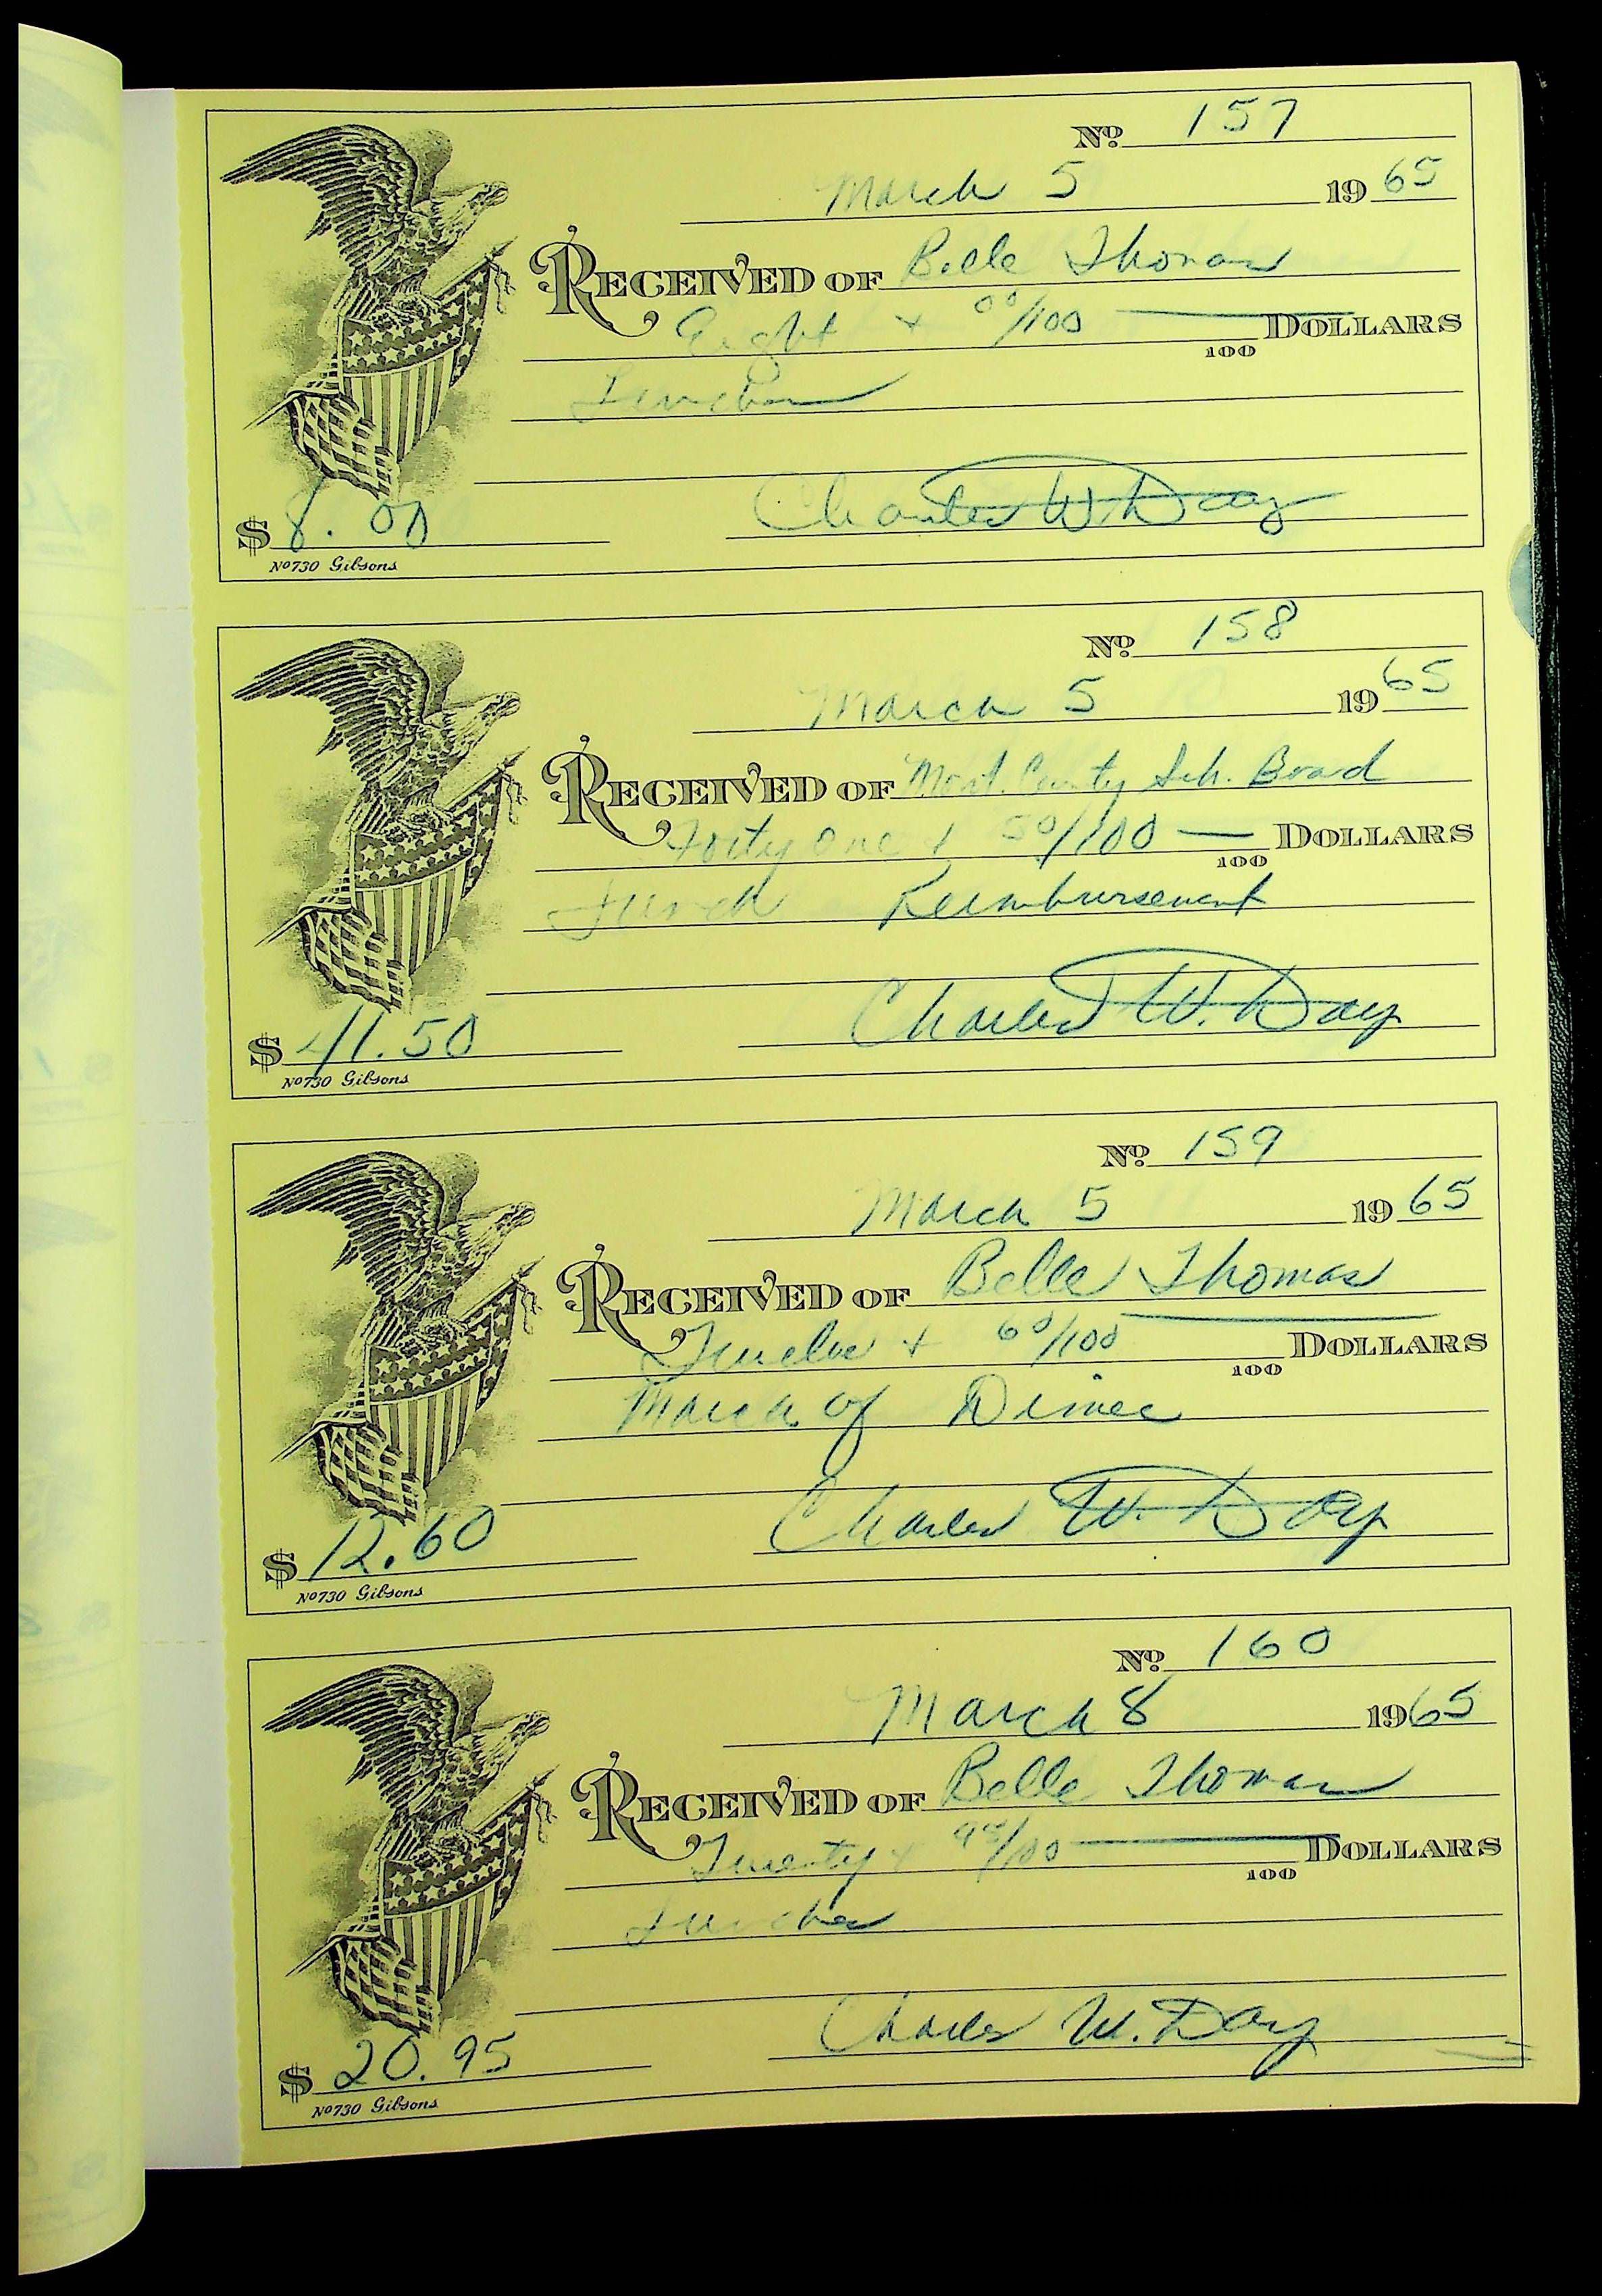 No. 157
March 5 1965
RECEIVED OF Belle Thomas
Eight + 00/100 DOLLARS
100
Lunches
Charles W. Day
$ 8.00
No 730 Gibsons
No. 158
March 5 1965
RECEIVED OF Mont. County Sch. Board
Forty One + 50/100 — DOLLARS
100
Lunch Reimbursement
Charles W. Day
$ 41.50
No 730 Gibsons
No. 159
March 5 1965
RECEIVED OF Belle Thomas
Twelve + 60/100 DOLLARS
100
March of Dimes
Charles W. Day
$ 12.60
No 730 Gibsons
No. 160
March 8 1965
RECEIVED OF Belle Thomas
Twenty + 95/100 DOLLARS
100
Lunches
Charles W. Day
$ 20.95
No 730 Gibsons